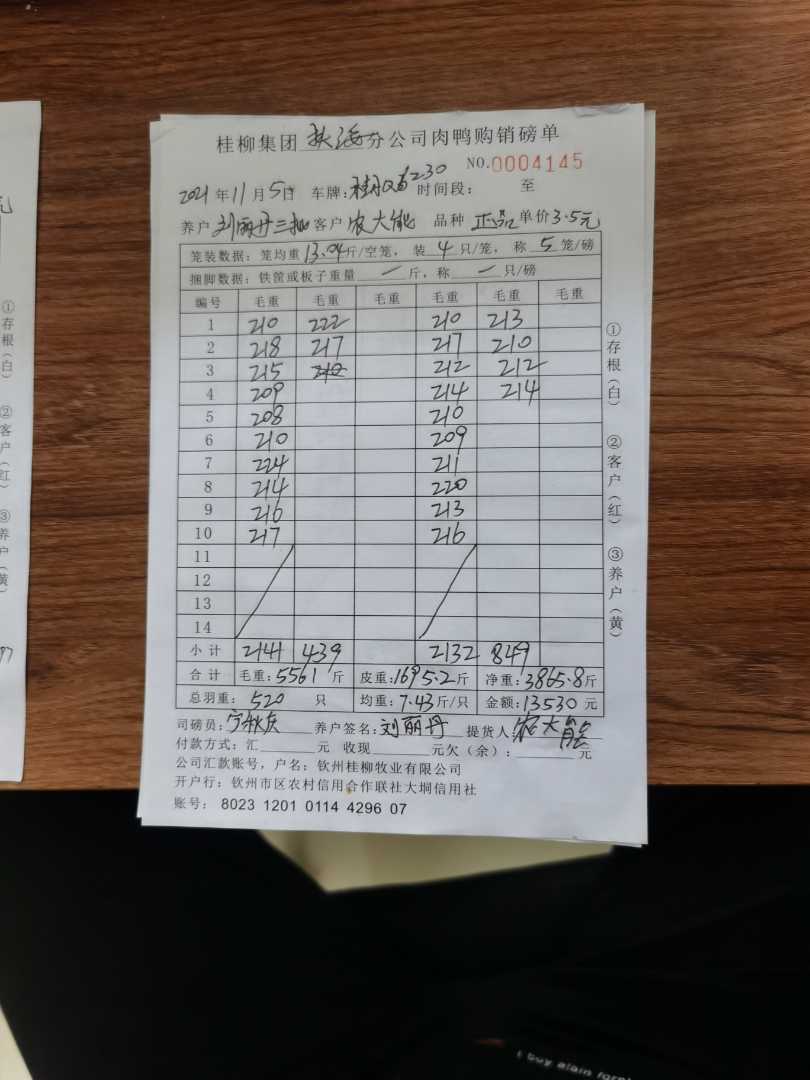 桂柳集团 钦海分公司肉鸭购销磅单
NO.0004145
2021年11月5日 车牌:桂Q230 时间段: 至
养户 刘丽丹三批 客户 农大能 品种 正品 单价3.5元
笼装数据:笼均重13.04斤/空笼,装4只/笼,称5笼/磅
捆脚数据:铁筐或板子重量 一 斤,称 一 只/磅
编号 毛重 毛重 毛重 毛重 毛重 毛重
1 210 222 210 213
2 218 217 217 210
3 215 212 212
4 209 214 214
5 208 210
6 210 209
7 224 211
8 214 220
9 216 213
10 217 216
11
12
13
14
小计 2141 439 2132 849
合计 毛重:5561斤 皮重:1695.2斤 净重:3865.8斤
总羽重:520 只 均重:7.43斤/只 金额:13530元
司磅员:宁秋庆 养户签名:刘丽丹 提货人:农大能
付款方式:汇 元 收现 元欠(余): 元
公司汇款账号,户名:钦州桂柳牧业有限公司
开户行:钦州市区农村信用合作联社大垌信用社
账号: 8023 1201 0114 4296 07
①存根(白) ②客户(红) ③养户(黄)
元
①存根(白) ②客户(红) ③养户(黄)
I buy alain